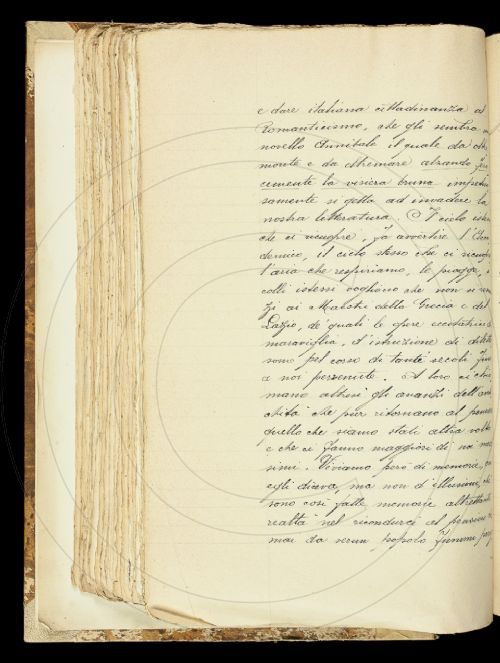 e dare italiana cittadinanza al
Romanticismo, che gli sembra
novello Annibale il quale da oltre
monte e da oltremare alzando
cemente la visiera bruna impetuo
samente si getta ad invadere la
nostra letteratura. Il cielo istesso
che ci ricuopre, fa avvertire l'Acca
demico, il cielo stesso che ci ricuopre
l'aria che respiriamo, le piagge, i
colli istessi vogliono che non si
zj ai Maestri della Grecia e del
Lazio, de' quali le opere eccitatrici
maraviglia, d'istruzione di diletto
sono pel corso di tanti secoli
a noi pervenute. A loro ci chia
mano altresì gli avanzi dell'anti
chità che pur ritornano al pensiero
quello che siamo stati altra volta
e che ci fanno maggiori di noi mede
simi. Viviamo però di memorie,
egli diceva, ma non d'illusione, che
sono così fatte memorie altrettante
realtà nel ricondurci al pensiero
mai da verun popolo furono